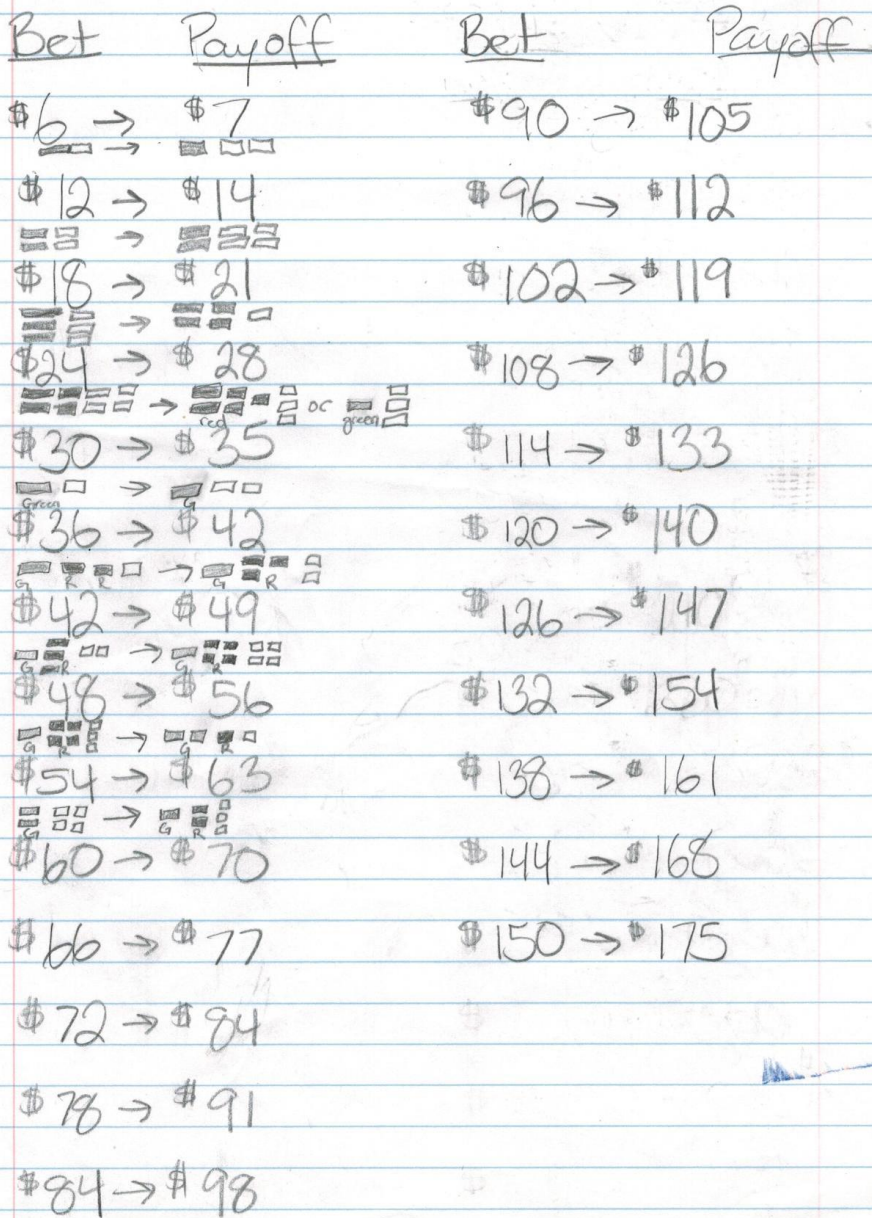 Bet Payoff
$6 → $7
$12 → $14
$18 → $21
$24 → $28
red or green
$30 → $35
Green G
$36 → $42
G R R G R
$42 → $49
G R G R
$48 → $56
G R G R
$54 → $63
G G R
$60 → $70
$66 → $77
$72 → $84
$78 → $91
$84 → $98
Bet Payoff
$90 → $105
$96 → $112
$102 → $119
$108 → $126
$114 → $133
$120 → $140
$126 → $147
$132 → $154
$138 → $161
$144 → $168
$150 → $175